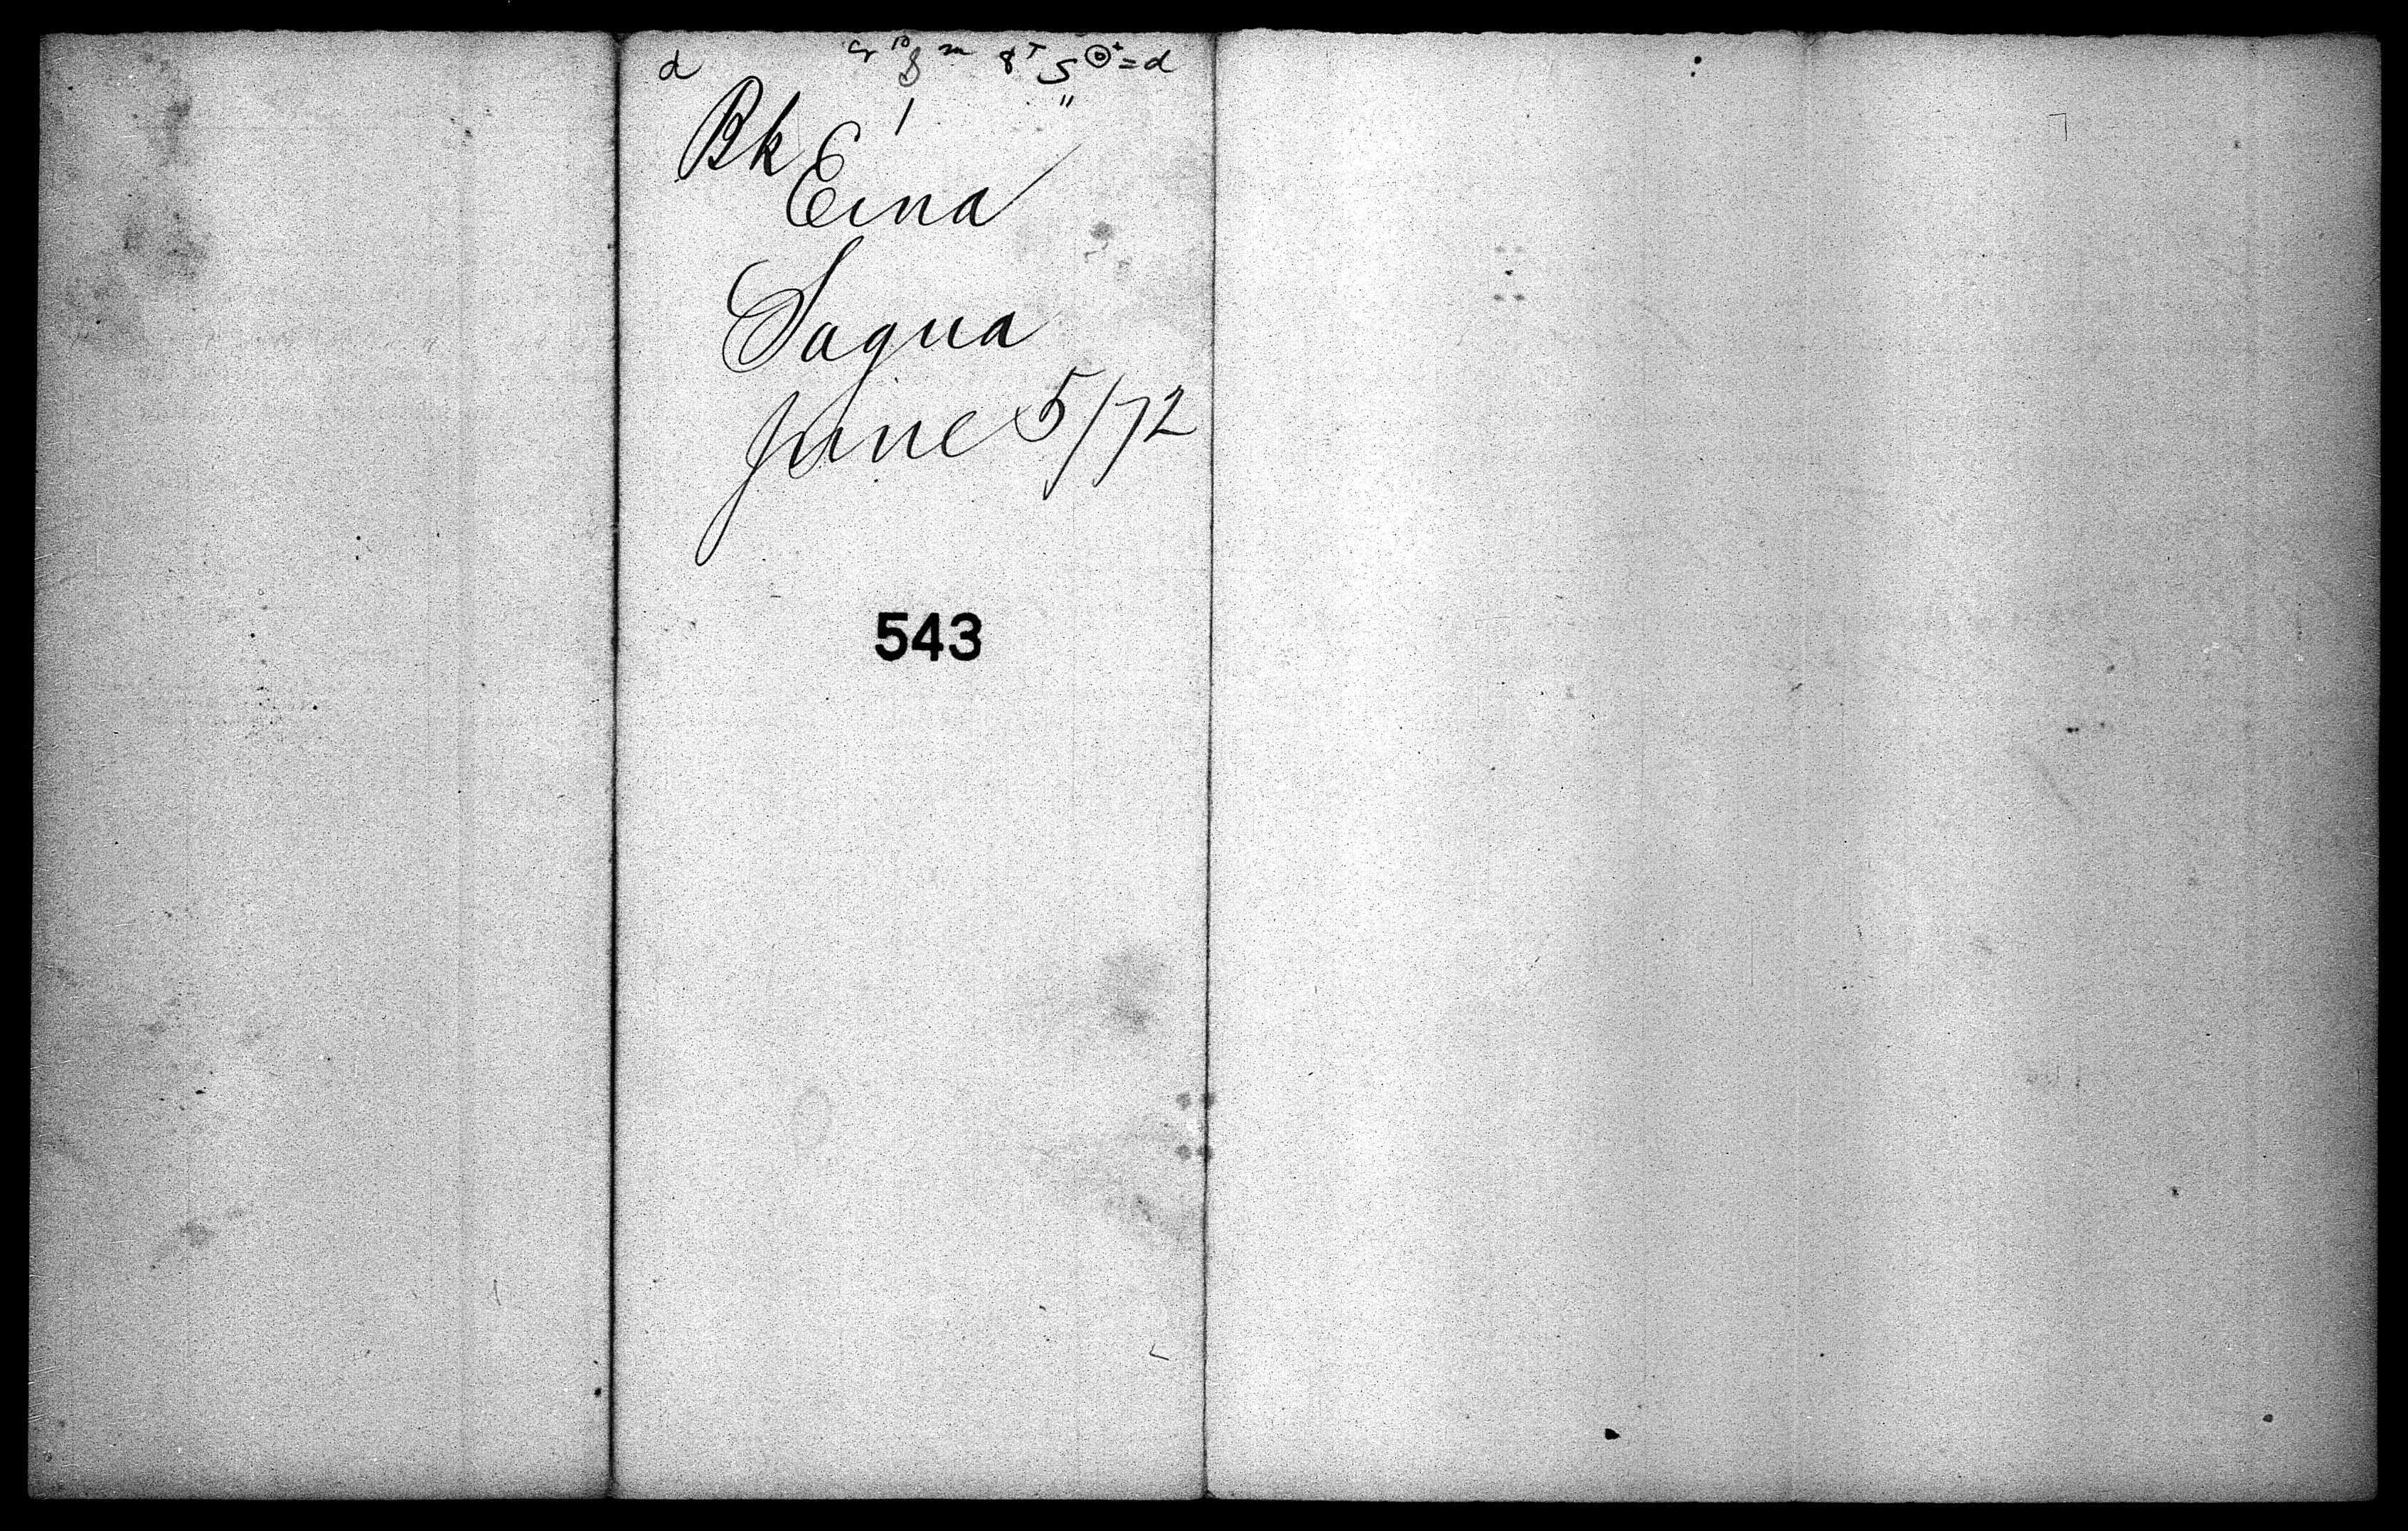 d
Bk Eina
Sagua
June 5/72
543